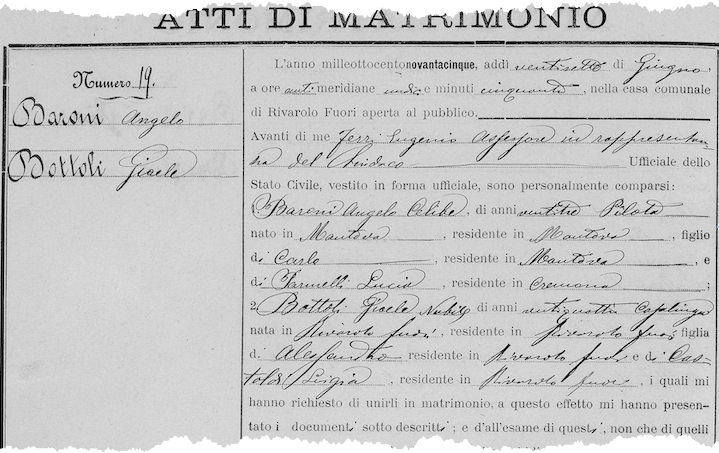 ATTI DI MATRIMONIO
Numero 19.
Baroni Angelo
Bottoli Gioele
L'anno milleottocentonovantacinque, addì ventisette di Giugno,
a ore antimeridiane undici e minuti cinquanta, nella casa comunale
di Rivarolo Fuori aperta al pubblico.
Avanti di me Ferri Eugenio Assessore in rappresentan-
za del Sindaco Ufficiale dello
Stato Civile, vestito in forma ufficiale, sono personalmente comparsi:
1. Baroni Angelo Celibe, di anni ventitre Pilota
nato in Mantova, residente in Mantova, figlio
di Carlo, residente in Mantova, e
di Lucia, residente in Cremona;
2. Bottoli Gioele Nubile di anni ventiquattro Casalinga
nata in Rivarolo fuori, residente in Rivarolo fuori figlia
di Alessandro residente in Rivarolo fuori e di Cas-
toldi Luigia, residente in Rivarolo fuori, i quali mi
hanno richiesto di unirli in matrimonio, a questo effetto mi hanno presen-
tato i documenti sotto descritti; e dall'esame di questi, non che di quelli